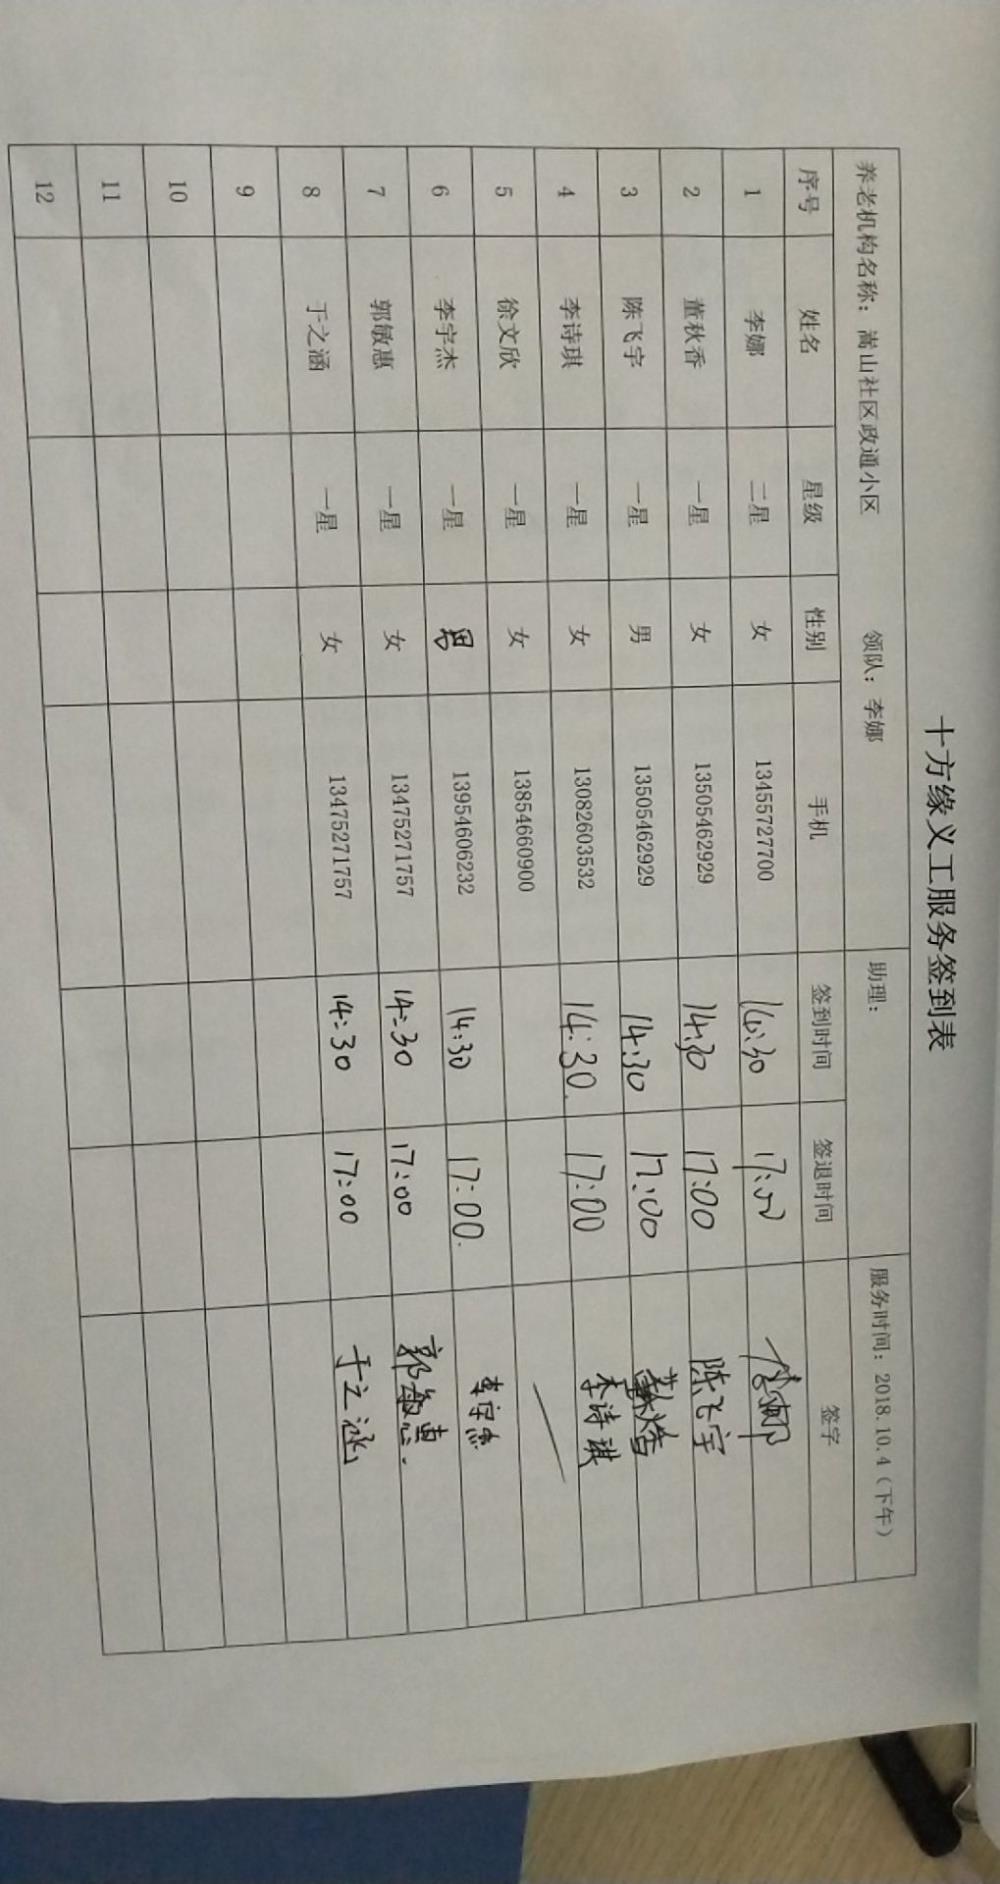 十方缘义工服务签到表
养老机构名称：嵩山社区政通小区 领队：李娜 助理： 服务时间：2018.10.4（下午）
序号 姓名 星级 性别 手机 签到时间 签退时间 签字
1 李娜 二星 女 13455727700 14:30 17:00 李娜
2 董秋香 一星 女 13505462929 14:30 17:00 陈飞宇
3 陈飞宇 一星 男 13505462929 14:30 17:00 董秋香
4 李诗琪 一星 女 13082603532 14:30. 17:00 李诗琪
5 徐文欣 一星 女 13854660900
6 李宇杰 一星 男 13954606232 14:30 17:00. 李宇杰
7 郭敏惠 一星 女 13475271757 14:30 17:00 郭敏惠.
8 于之涵 一星 女 13475271757 14:30 17:00 于之涵
9
10
11
12